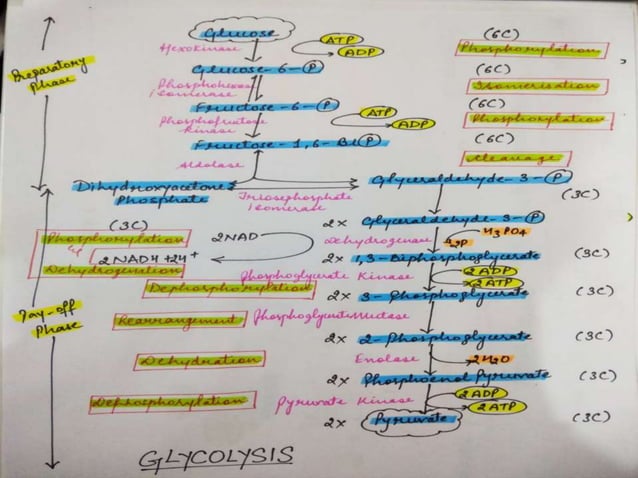 Glucose
ATP
(6C)
Hexokinase
ADP
Phosphorylation
Preparatory
Phase
Glucose-6-P
(6C)
Phosphohexose
isomerase
Isomerisation
Fructose-6-P
ATP
(6C)
Phosphofructose
Kinase
ADP
Phosphorylation
Fructose-1,6-Bi P
(6C)
Aldolase
Cleavage
Dihydroxyacetone
Phosphate
Triosephosphate
isomerase
Glyceraldehyde-3-P
(3C)
(3C)
2x Glyceraldehyde-3-P
Phosphorylation
&
Dehydrogenation
2NAD
2NADH+2H+
Dehydrogenase
H3PO4
2x 1,3-Biphosphoglycerate
(3C)
Phosphoglycerate Kinase
2ADP
2ATP
Dephosphorylation
2x 3-Phosphoglycerate
(3C)
Pay-off
Phase
Rearrangement
Phosphoglyceromutase
2x 2-Phosphoglycerate
(3C)
Dehydration
Enolase
2H2O
2x Phosphoenol Pyruvate
(3C)
Dephosphorylation
Pyruvate Kinase
2ADP
2ATP
2x Pyruvate
(3C)
GLYCOLYSIS